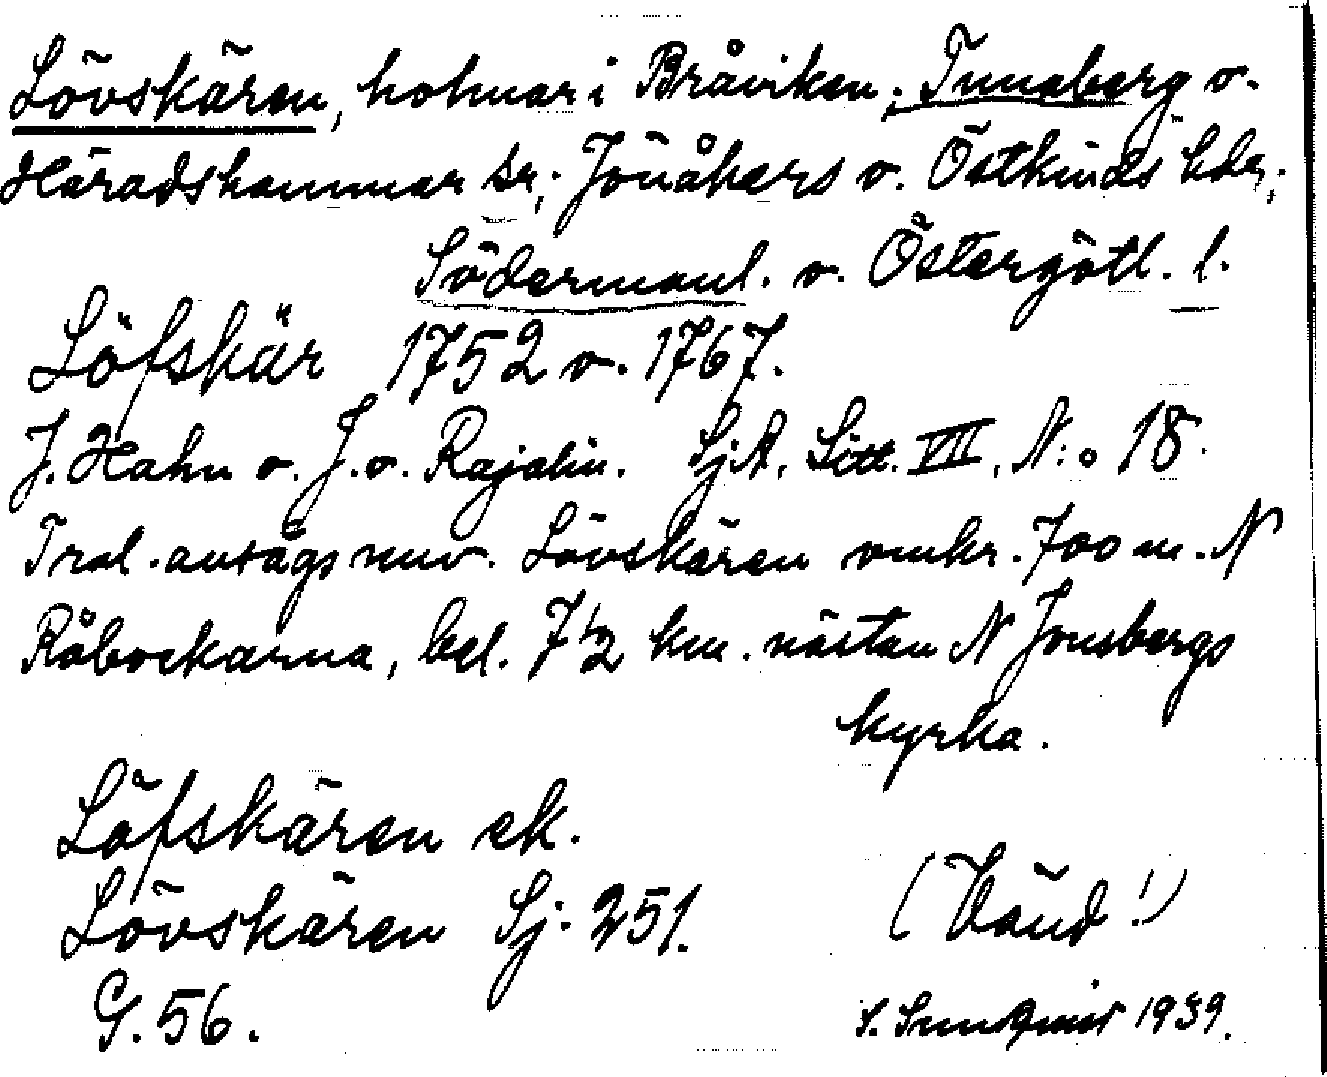 Lövskären, holmar i Bråviken; Tunaberg o.
Häradshammar sr; Jönåkers o. Östkinds hdr;
Södermanl. o. Östergötl. l.
Löfskär 1752 o. 1767.
J. Hahn o. J. v. Rajalin. SjA, Litt. VII, N:o 18.
Trol. avsågs nuv. Lövskären omkr. 700 m. N
Råbockarna, bel. 7 1/2 km. nästan N Jonsbergs
kyrka.
Löfskären ek.
Lövskären Sj. 251.
(Vänd!)
G. 56.
S. 1939.